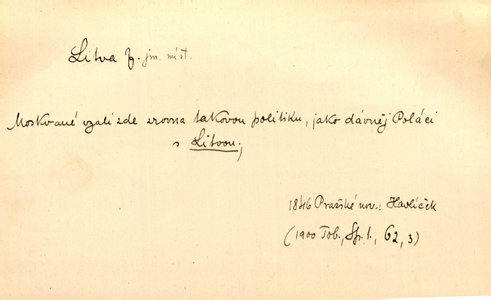 Litva f. jm. míst.
Moskvané vzali zde zrovna takovou politiku, jako dávněj Poláci
s Litvou;
1846 Pražské nov.; Havlíček
(1900 Tob., Sp. 1., 62, 3)